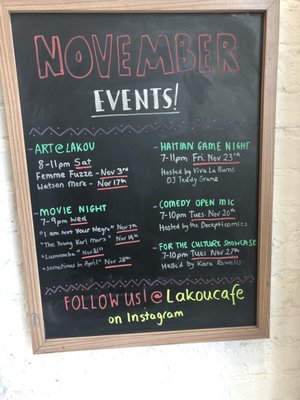 NOVEMBER
EVENTS!
- ART@LAKOU
8-11pm Sat
Femme Fuzze - Nov 3rd
Watson Mere - Nov 17th
- MOVIE NIGHT
7-9pm Wed
"I am Not Your Negro" Nov 7th
"The Young Karl Marx" Nov 14th
"Lumumba" Nov 21st
"Sometimes in April" Nov 28th
- HAITIAN GAME NIGHT
7-11pm Fri. Nov 23rd
Hosted by Viva La Buns
DJ Teddy Grame
- COMEDY OPEN MIC
7-10pm Tues. Nov 20th
Hosted by the Decepticomics
- FOR THE CULTURE SHOWCASE
7-10pm Tues. Nov 27th
Hosted by Kara
FOLLOW US! @Lakoucafe
on Instagram